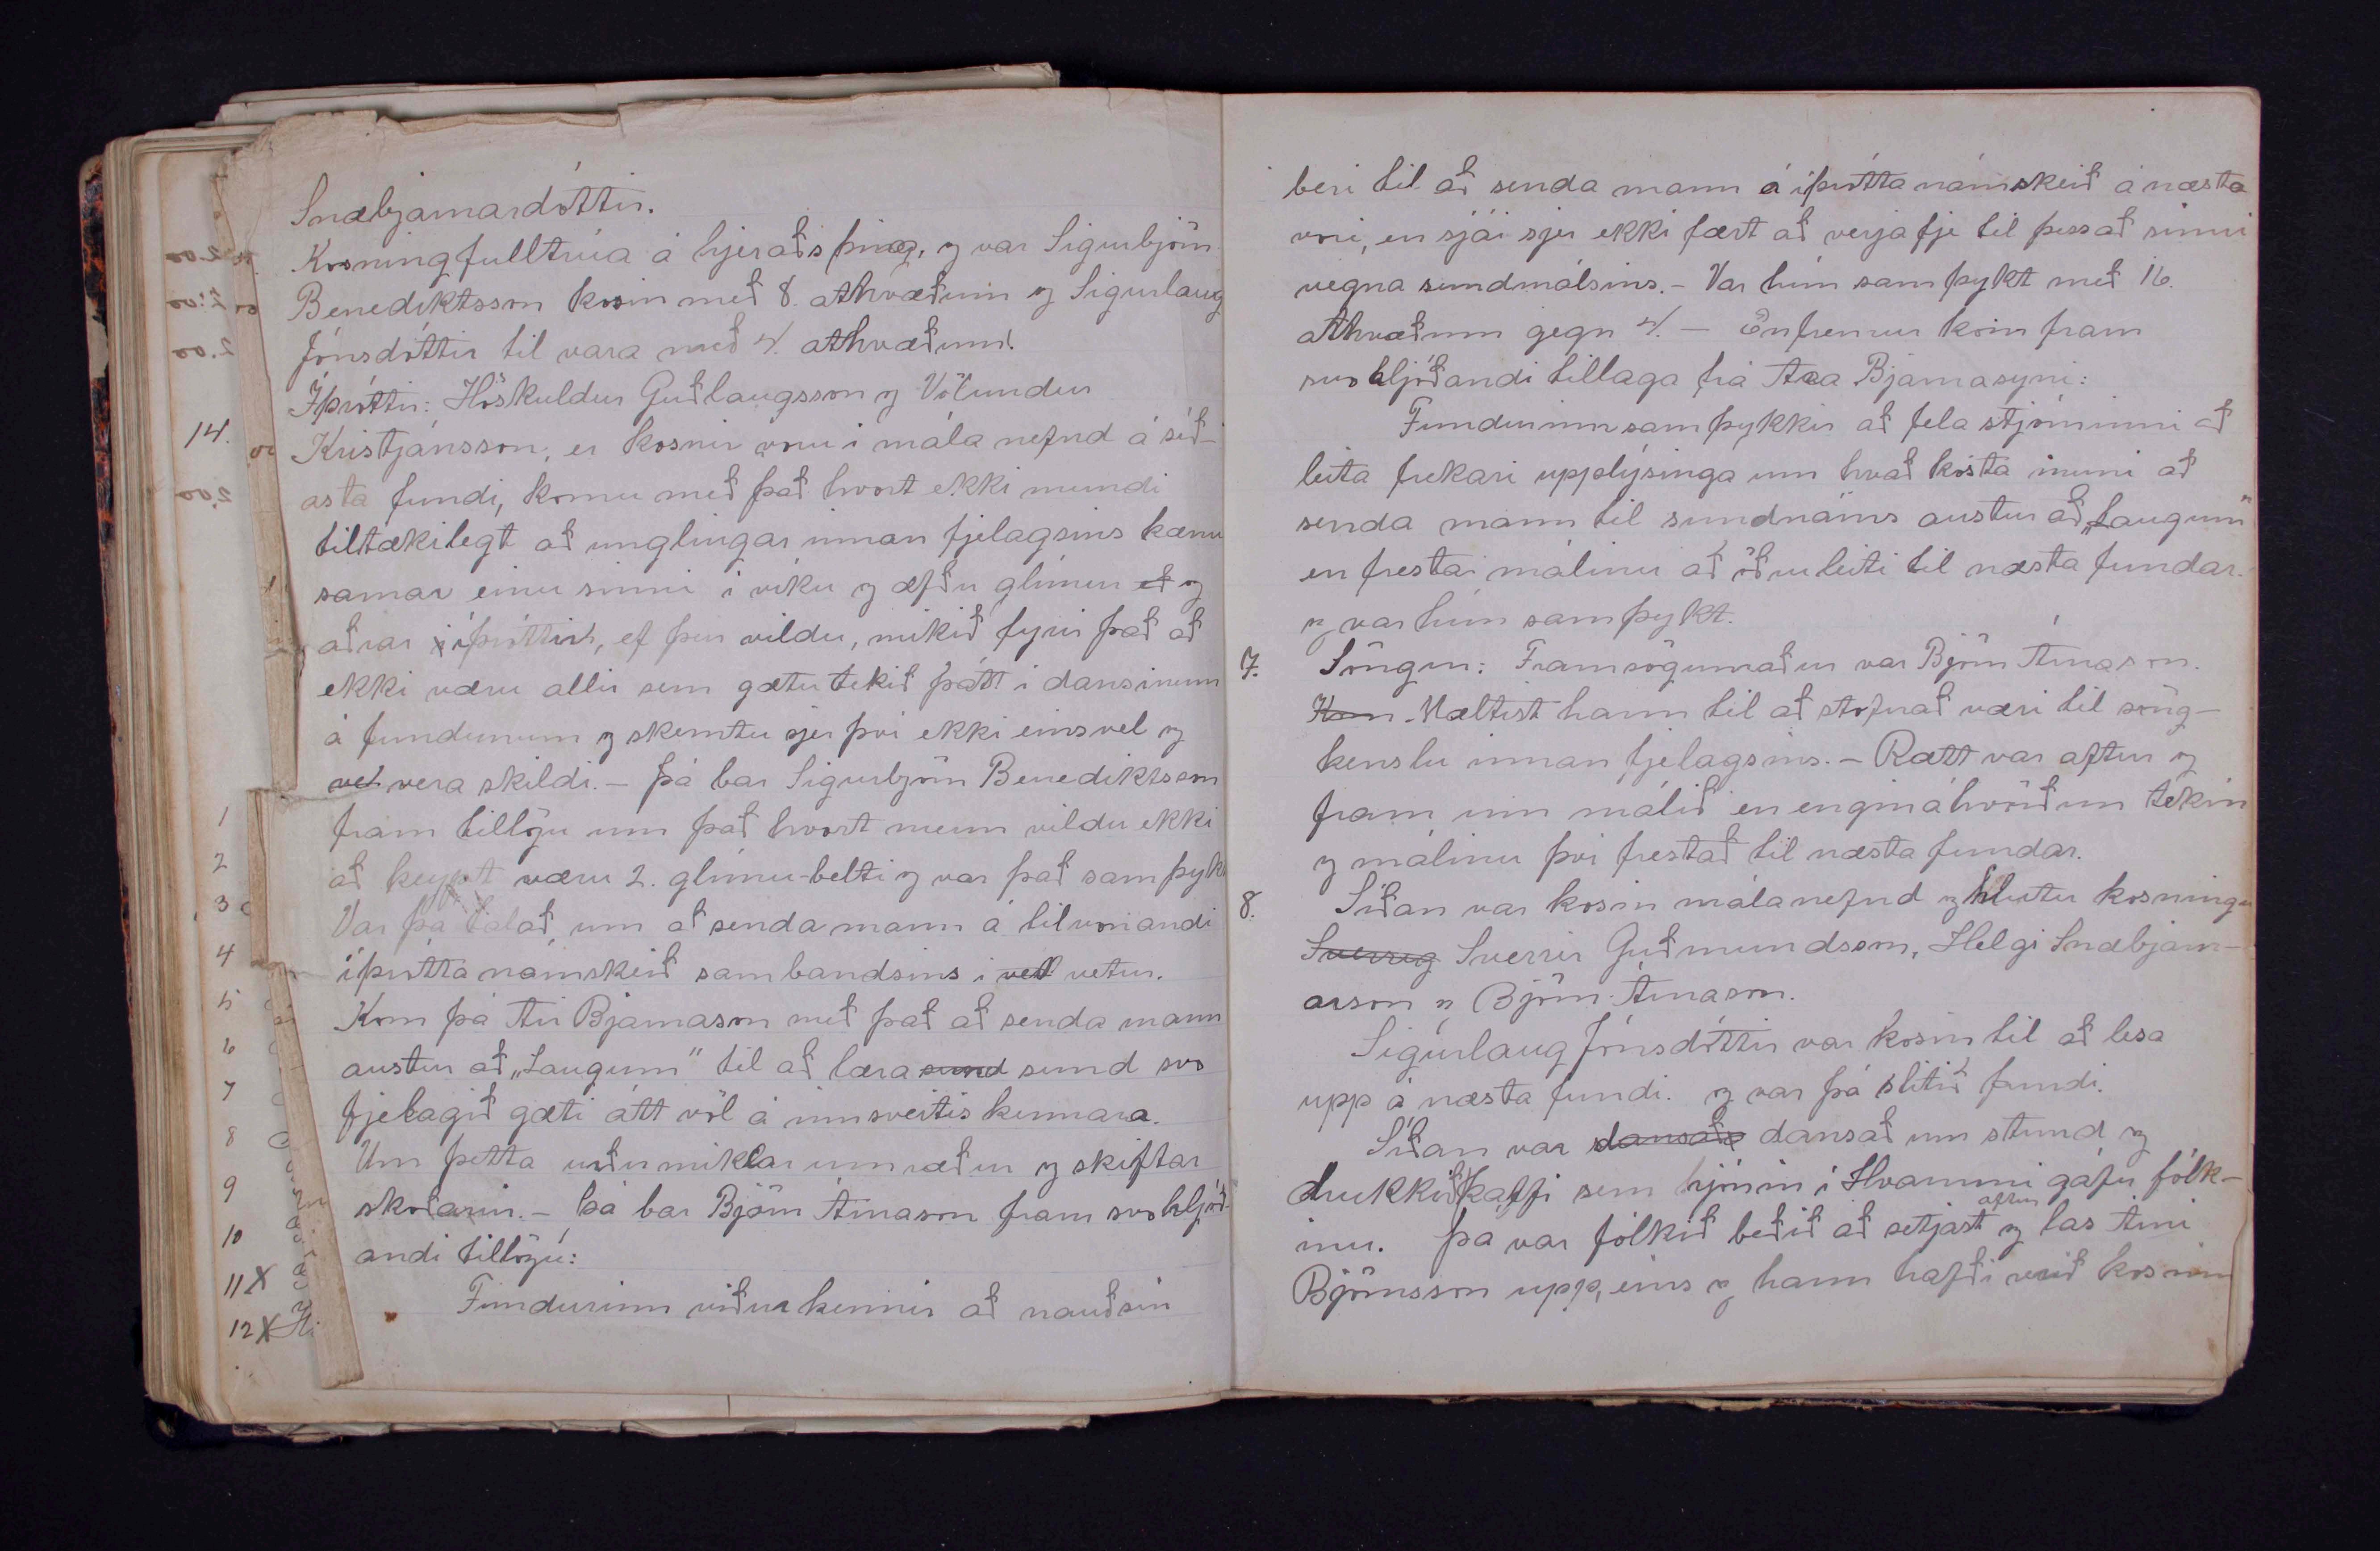 Snæbjarnardóttir.
Kosning fulltrúa á hjeraðsþing, og var Sigurbjörn
Benediktsson kosin með 8. athvæðum og Sigurlaug
Jónsdóttir til vara með 4. athvæðum.
Íþróttir: Höskuldur Guðlaugsson og Völundur
Kristjánsson, er kosnir voru i mála nefnd á síð-
asta fundi, komu með það hvort ekki mundi
tiltækilegt að unglingar innan fjelagsins kæmu
saman einu sinni i viku og æfðu glímur og
aðrar íþróttir, ef þeir vildu, mikið fyrir það að
ekki væru allir sem gætu tekið þátt i dansinum
á fundunum og skemtu sjer því ekki eins vel og
vel vera skildi. - Þá bar Sigurbjörn Benediktsson
fram tillögu um það hvort menn vildu ekki
að keypt væru 2. glímu-belti og var það samþykt
Var þá talað um að senda mann á tilvonandi
íþrótta námskeið sambandsins i vet vetur.
Kom þá Ari Bjarnason með það að senda mann
austur að „Laugum" til að læra sund sund svo
fjelagið gæti átt völ á innsveitis kennara.
Um þetta urðu miklar umræður og skiftar
skoðanir. - Þá bar Björn Árnason fram svohljóð-
andi tillögu:
Fundurinn viðurkennir að nauðsin
14.
2.00
2.00
2.00
2.00
1
2
3
4
5
6
7
8
9
10
11 X
12 X
beri til að senda mann á íþrótta námskeið á næsta
vori, en sjái sjer ekki fært að verja fje til þess að sinni
vegna sundmálsins. - Var hún samþykt með 16.
athvæðum gegn 4. - Enfremur kom fram
svo hljóðandi tillaga frá Ara Bjarnasyni:
Fundurinn samþykkir að fela stjórninni að
leita frekari upplýsinga um hvað kosta muni að
senda mann til sundnáms austur að „Laugum"
en fresta málinu að öðru leiti til næsta fundar.
og var hún samþykt.
7. Söngur: Framsögumaður var Björn Árnason.
Kom - Mæltist hann til að stofnað væri til söng-
kenslu innan fjelagsins. - Rætt var aftur og
fram um málið en engin áhvörðun tekin
og málinu því frestað til næsta fundar.
8. Síðan var kosin málanefnd og hlutu kosningu
Sverrir Guðmundsson, Helgi Snæbjarn-
arson og Björn Árnason.
Sigurlaug Jónsdóttir var kosin til að lesa
upp á næsta fundi. og var þá slitið fundi.
Síðan var dansað dansað um stund og
drukkið kaffi sem hjónin í Hvammi gáfu fólk-
inu. Þá var fólkið beðið að setjast aftur og las Árni
Björnsson upp, eins og hann hafði verið kosinn